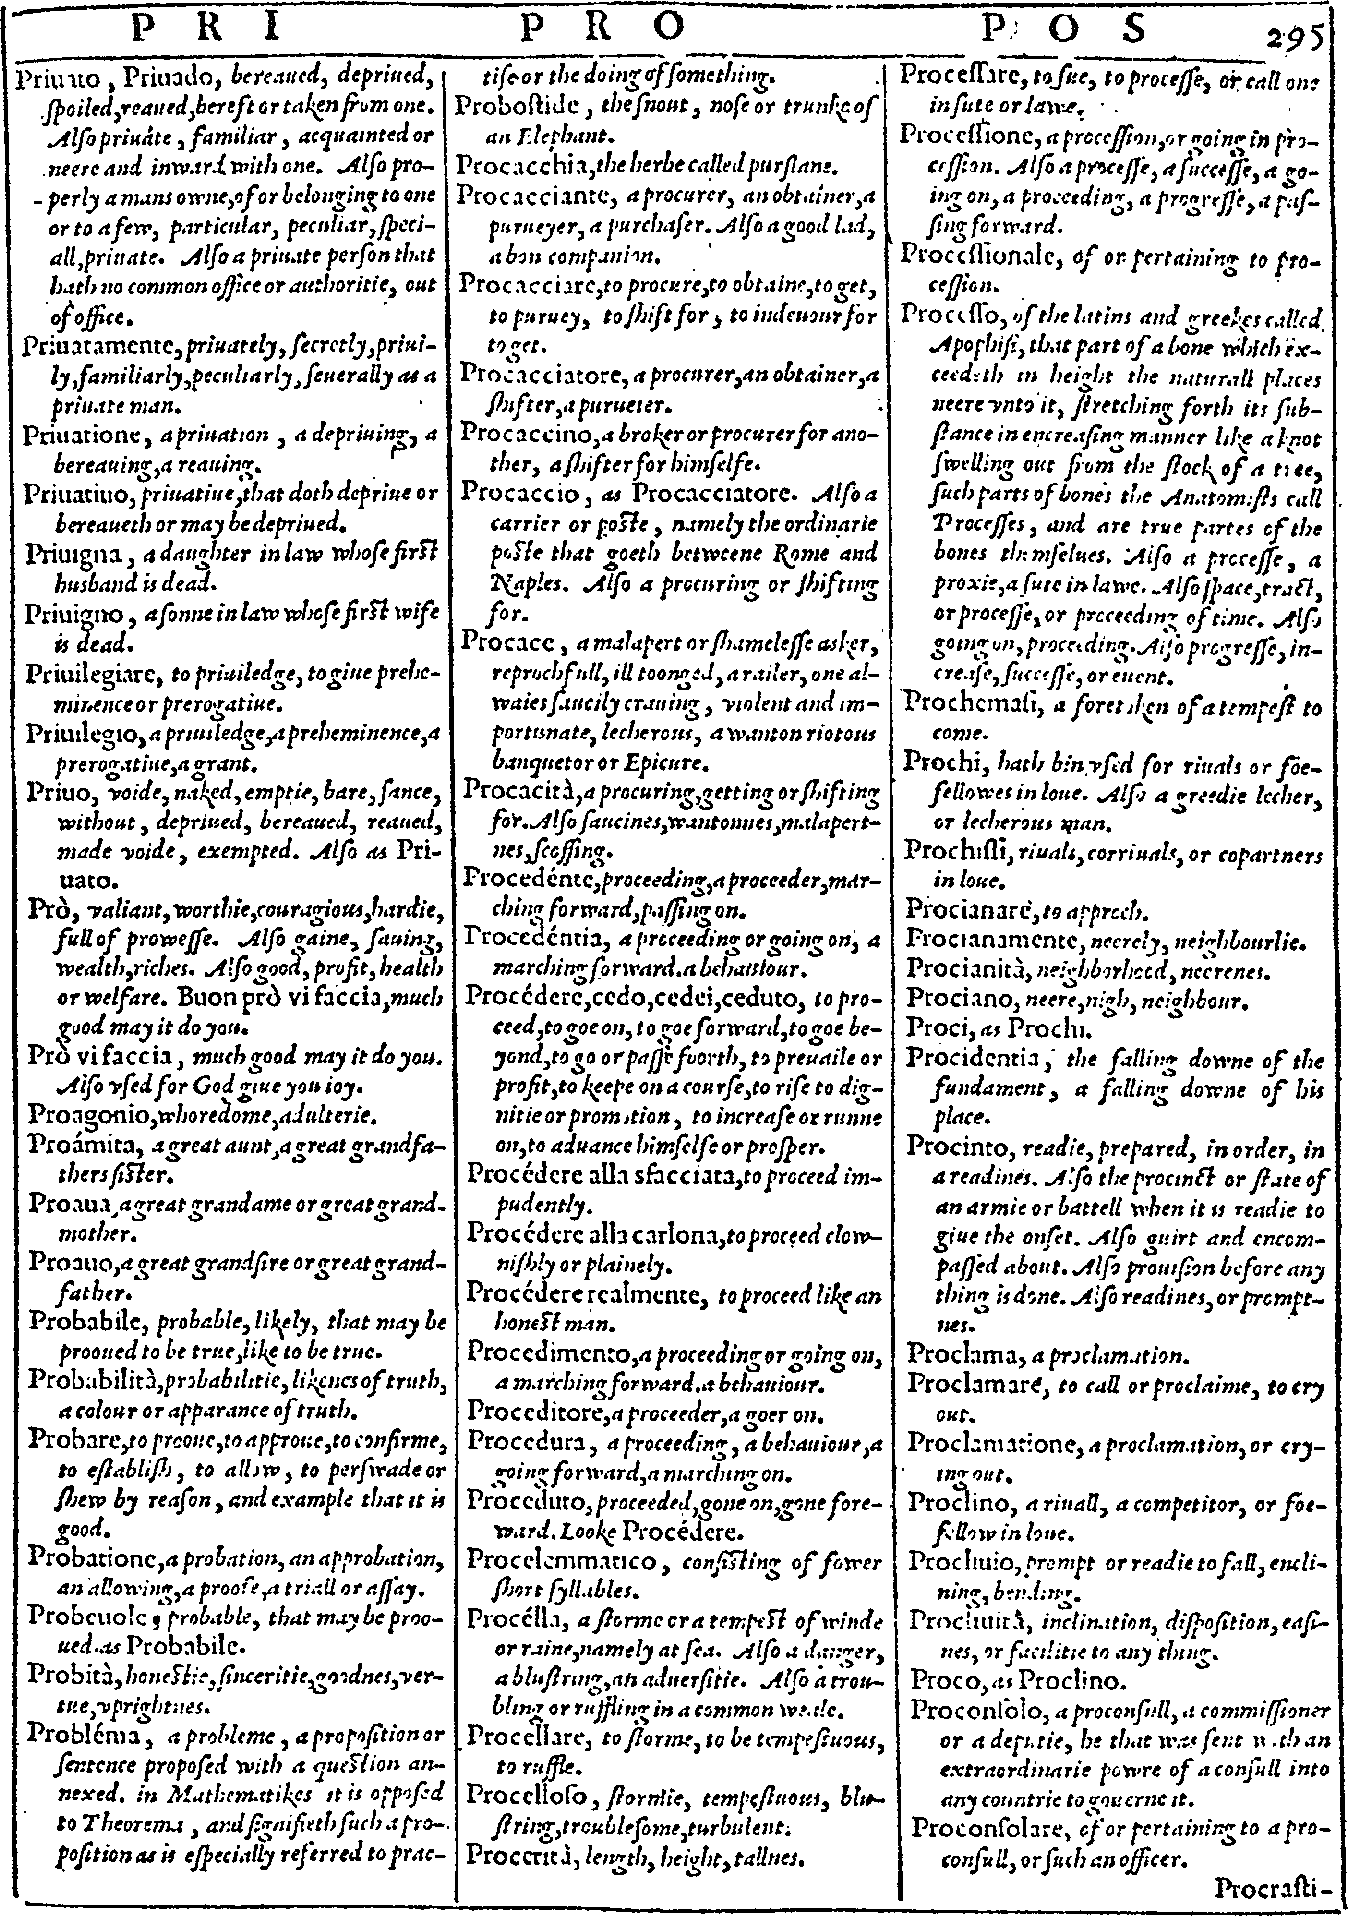 P R I P R O P O S 295
Priuato, Priuado, bereaued, depriued,
spoiled, reaued, bereft or taken from one.
Also priuáte, familiar, acquainted or
neere and inward with one. Also pro-
perly a mans owne, of or belonging to one
or to a few, particular, peculiar, speci-
all, priuate. Also a priuate person that
hath no common office or authoritie, out
of office.
Priuatamente, priuately, secretly, priui-
ly, familiarly, peculiarly, seuerally as a
priuate man.
Priuatione, a priuation, a depriuing, a
bereauing, a reauing.
Priuatiuo, priuatiue, that doth depriue or
bereaueth or may be depriued.
Priuigna, a daughter in law whose first
husband is dead.
Priuigno, a sonne in law whose first wife
is dead.
Priuilegiare, to priuiledge, to giue prehe-
minence or prerogatiue.
Priuilegio, a priuiledge, a preheminence, a
prerogatiue, a grant.
Priuo, voide, naked, emptie, bare, sance,
without, depriued, bereaued, reaued,
made voide, exempted. Also as Pri-
uato.
Prò, valiant, worthie, couragious, hardie,
full of prowesse. Also gaine, sauing,
wealth, riches. Also good, profit, health
or welfare. Buon prò vi faccia, much
good may it do you.
Prò vi faccia, much good may it do you.
Also vsed for God giue you ioy.
Proagonio, whoredome, adulterie.
Proámita, a great aunt, a great grandfa-
thers sister.
Proaua, a great grandame or great grand-
mother.
Proauo, a great grandsire or great grand-
father.
Probabile, probable, likely, that may be
prooued to be true, like to be true.
Probabilità, probabilitie, likenes of truth,
a colour or apparance of truth.
Probare, to prooue, to approue, to confirme,
to establish, to allow, to perswade or
shew by reason, and example that it is
good.
Probatione, a probation, an approbation,
an allowing, a proofe, a triall or assay.
Probeuole, probable, that may be proo-
ued as Probabile.
Probità, honestie, sinceritie, goodnes, ver-
tue, vprightnes.
Probléma, a probleme, a proposition or
sentence proposed with a question an-
nexed. in Mathematikes it is opposed
to Theorema, and signifieth such a pro-
position as is especially referred to prac-
tise or the doing of something.
Probostide, the snout, nose or trunke of
an Elephant.
Procacchia, the herbe called purslane.
Procacciante, a procurer, an obtainer, a
purueyer, a purchaser. Also a good lad,
a bon companion.
Procacciare, to procure, to obtaine, to get,
to puruey, to shift for, to indeuour for
to get.
Procacciatore, a procurer, an obtainer, a
shifter, a purueier.
Procaccino, a broker or procurer for ano-
ther, a shifter for himselfe.
Procaccio, as Procacciatore. Also a
carrier or poste, namely the ordinarie
poste that goeth betweene Rome and
Naples. Also a procuring or shifting
for.
Procace, a malapert or shamelesse asker,
reprochfull, ill toonged, a railer, one al-
waies saucily crauing, violent and im-
portunate, lecherous, a wanton riotous
banquetor or Epicure.
Procacità, a procuring, getting or shifting
for. Also saucines, wantonnes, malapert-
nes, scoffing.
Procedénte, proceeding, a proceeder, mar-
ching forward, passing on.
Procedéntia, a proceeding or going on, a
marching forward. a behauiour.
Procédere, cedo, cedei, ceduto, to pro-
ceed, to goe on, to goe forward, to goe be-
yond, to go or passe foorth, to preuaile or
profit, to keepe on a course, to rise to dig-
nitie or promotion, to increase or runne
on, to aduance himselfe or prosper.
Procédere alla sfacciata, to proceed im-
pudently.
Procédere alla carlona, to proceed clow-
nishly or plainely.
Procédere realmente, to proceed like an
honest man.
Procedimento, a proceeding or going on,
a marching forward. a behauiour.
Proceditore, a proceeder, a goer on.
Procedura, a proceeding, a behauiour, a
going forward, a marching on.
Proceduto, proceeded, gone on, gone fore-
ward. Looke Procédere.
Procelemmatico, consisting of fower
short syllables.
Procélla, a storme or a tempest of winde
or raine, namely at sea. Also a danger,
a blustring, an aduersitie. Also a trou-
bling or ruffling in a common weale.
Procellare, to storme, to be tempestuous,
to ruffle.
Procelloso, stormie, tempestuous, blu-
string, troublesome, turbulent.
Procerità, length, height, tallnes.
Processare, to sue, to processe, or call one
in sute or lawe.
Processione, a procession, or going in pro-
cession. Also a processe, a successe, a go-
ing on, a proceeding, a progresse, a pas-
sing forward.
Processionale, of or pertaining to pro-
cession.
Processo, of the latins and greekes called
Apophisi, that part of a bone which ex-
ceedeth in height the naturall places
neere vnto it, stretching forth its sub-
stance in encreasing manner like a knot
swelling out from the stock of a tree,
such parts of bones the Anatomists call
Processes, and are true partes of the
bones themselues. Also a processe, a
proxie, a sute in lawe. Also space, tract,
or processe, or proceeding of time. Also
going on, proceeding. Also progresse, in-
crease, successe, or euent.
Prochemasi, a foretoken of a tempest to
come.
Prochi, hath bin vsed for riuals or foe-
fellowes in loue. Also a greedie lecher,
or lecherous man.
Prochisti, riuals, corriuals, or copartners
in loue.
Procianare, to approch.
Procianamente, neerely, neighbourlie.
Procianità, neighborheed, neerenes.
Prociano, neere, nigh, neighbour.
Proci, as Prochi.
Procidentia, the falling downe of the
fundament, a falling downe of his
place.
Procinto, readie, prepared, in order, in
a readines. Also the procinct or state of
an armie or battell when it is readie to
giue the onset. Also guirt and encom-
passed about. Also prouision before any
thing is done. Also readines, or prompt-
nes.
Proclama, a proclamation.
Proclamare, to call or proclaime, to cry
out.
Proclamatione, a proclamation, or cry-
ing out.
Proclino, a riuall, a competitor, or foe-
fellow in loue.
Procliuio, prompt or readie to fall, encli-
ning, bending.
Procliuità, inclination, disposition, easi-
nes, or facilitie to any thing.
Proco, as Proclino.
Proconsolo, a proconsull, a commissioner
or a deputie, he that was sent with an
extraordinarie powre of a consull into
any countrie to gouerne it.
Proconsolare, of or pertaining to a pro-
consull, or such an officer.
Procrasti-